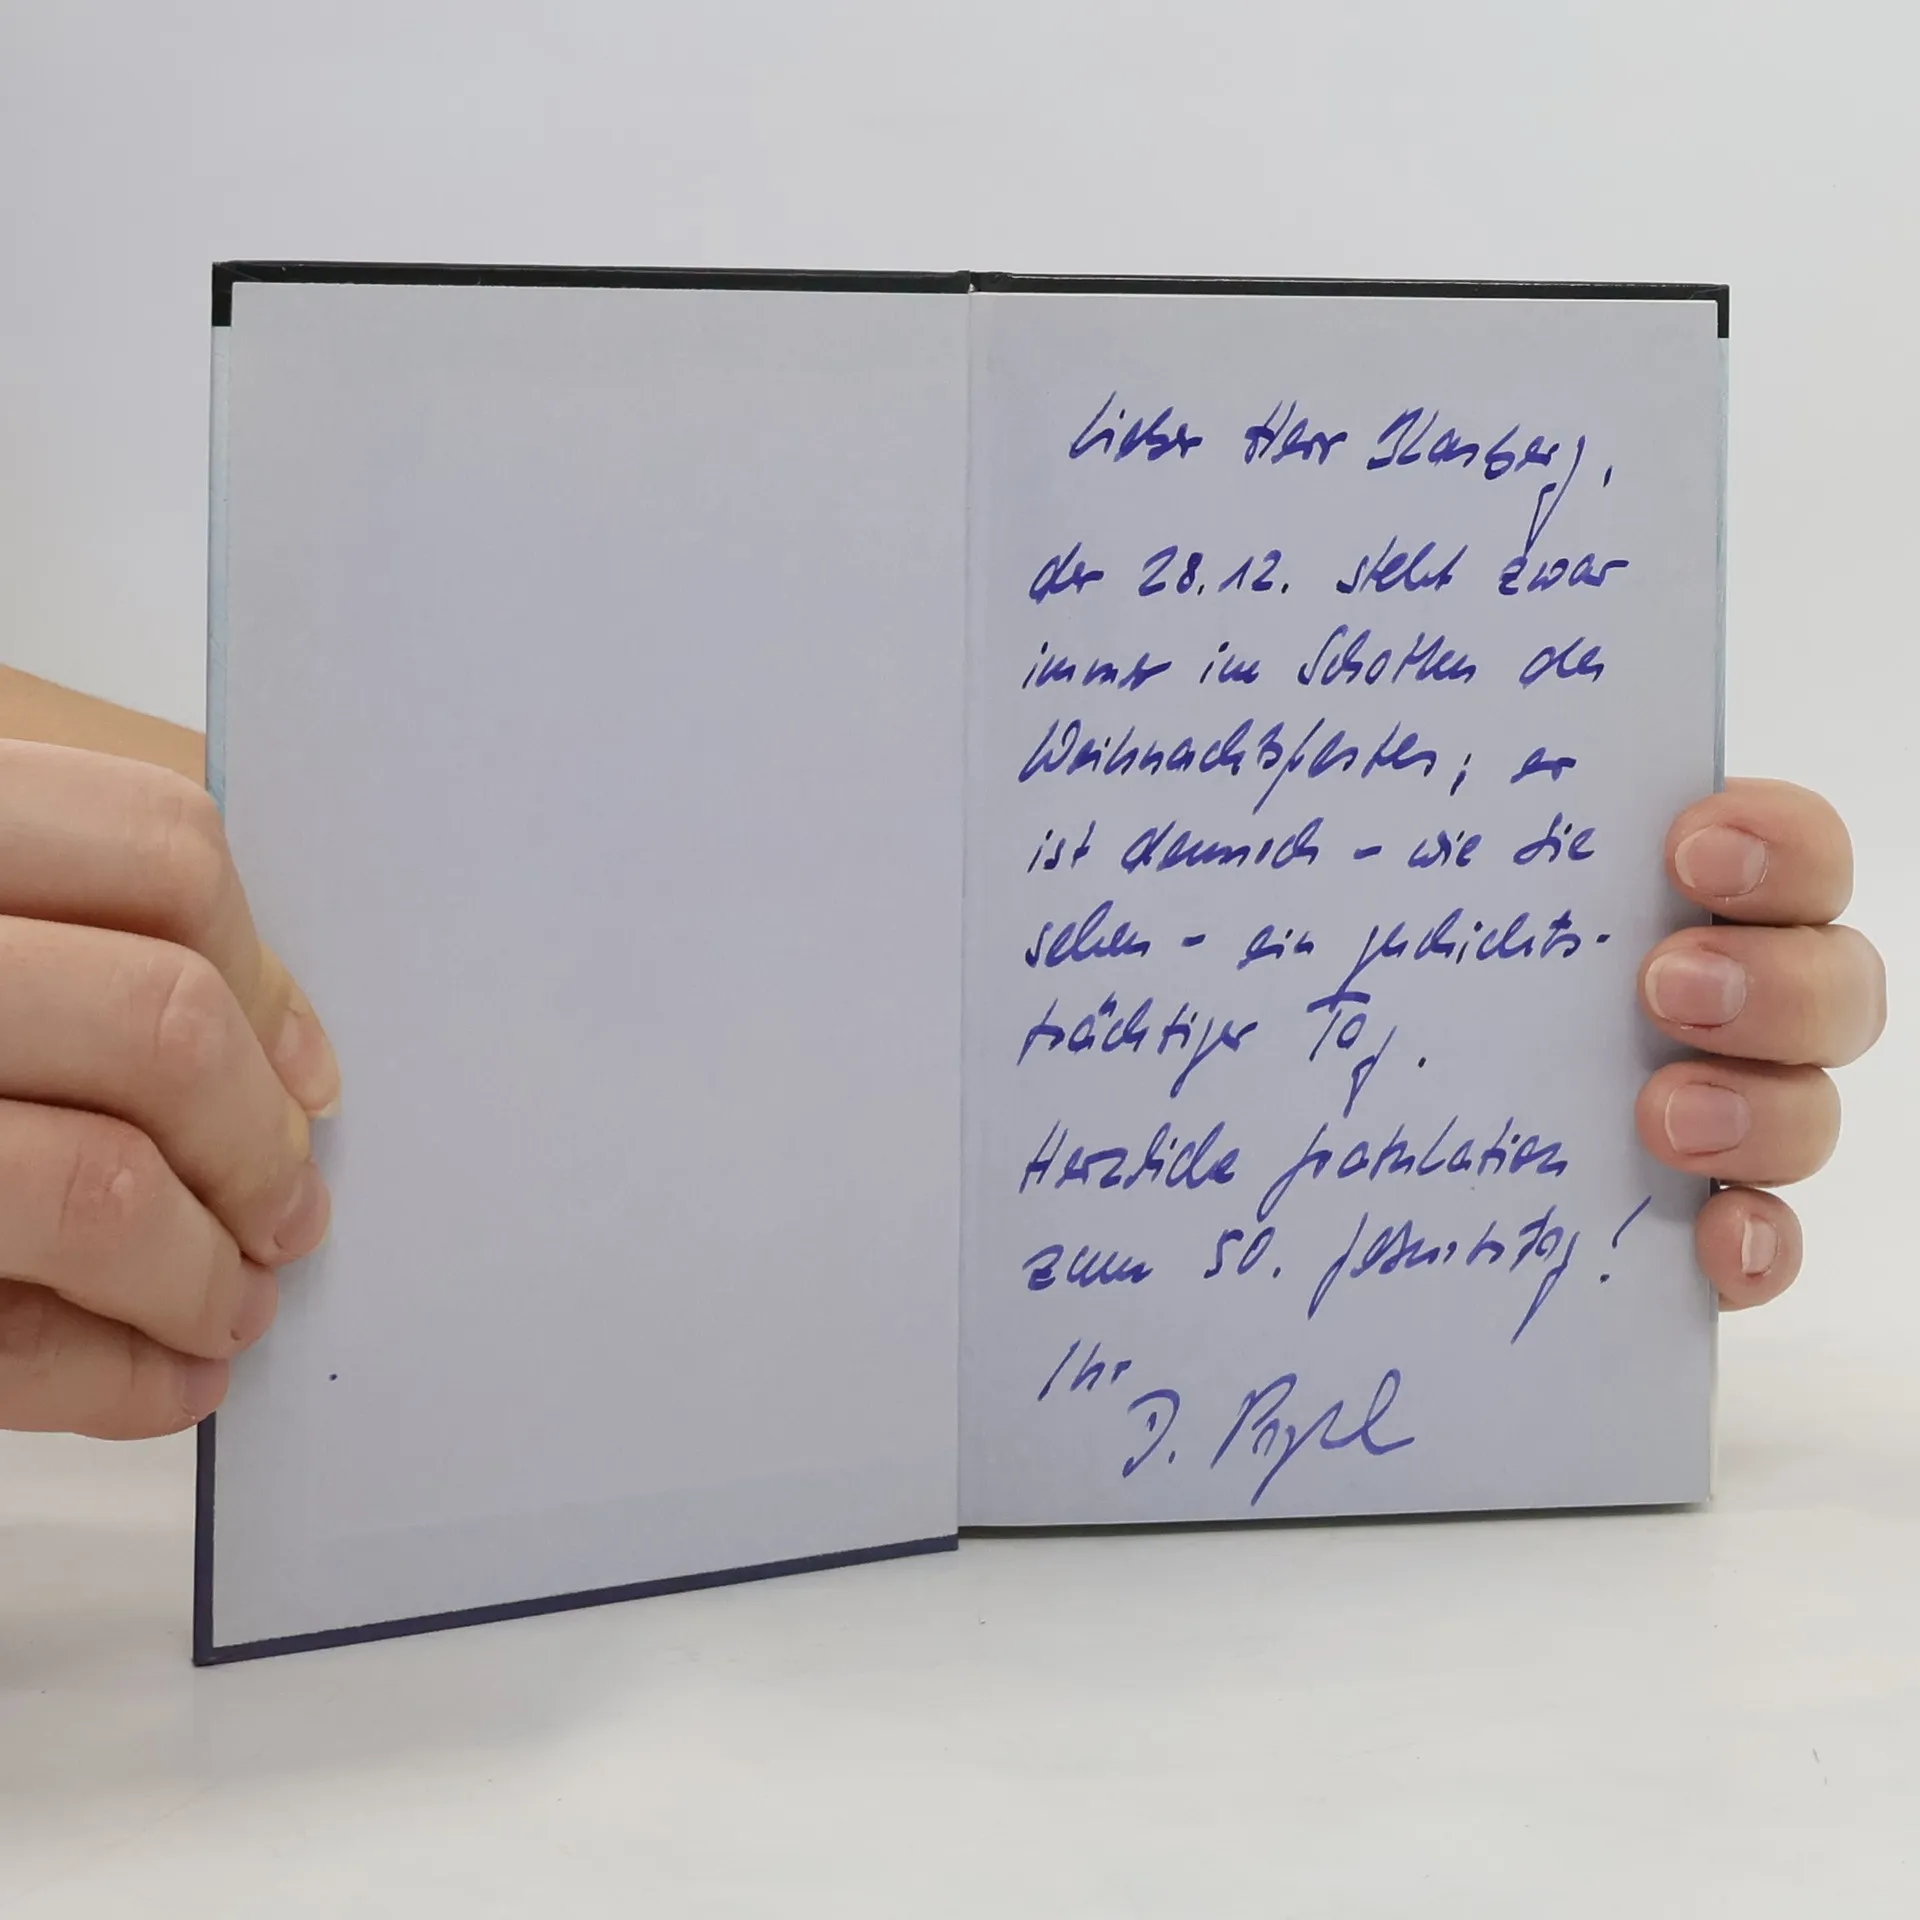 Lieber Herr
der 28.12. steht zwar
immer im Schatten des
Weihnachtsfestes; er
ist dennoch - wie Sie
sehen - ein geschichts-
trächtiger Tag.
Herzliche Gratulation
zum 50. Geburtstag!
Ihr
D.